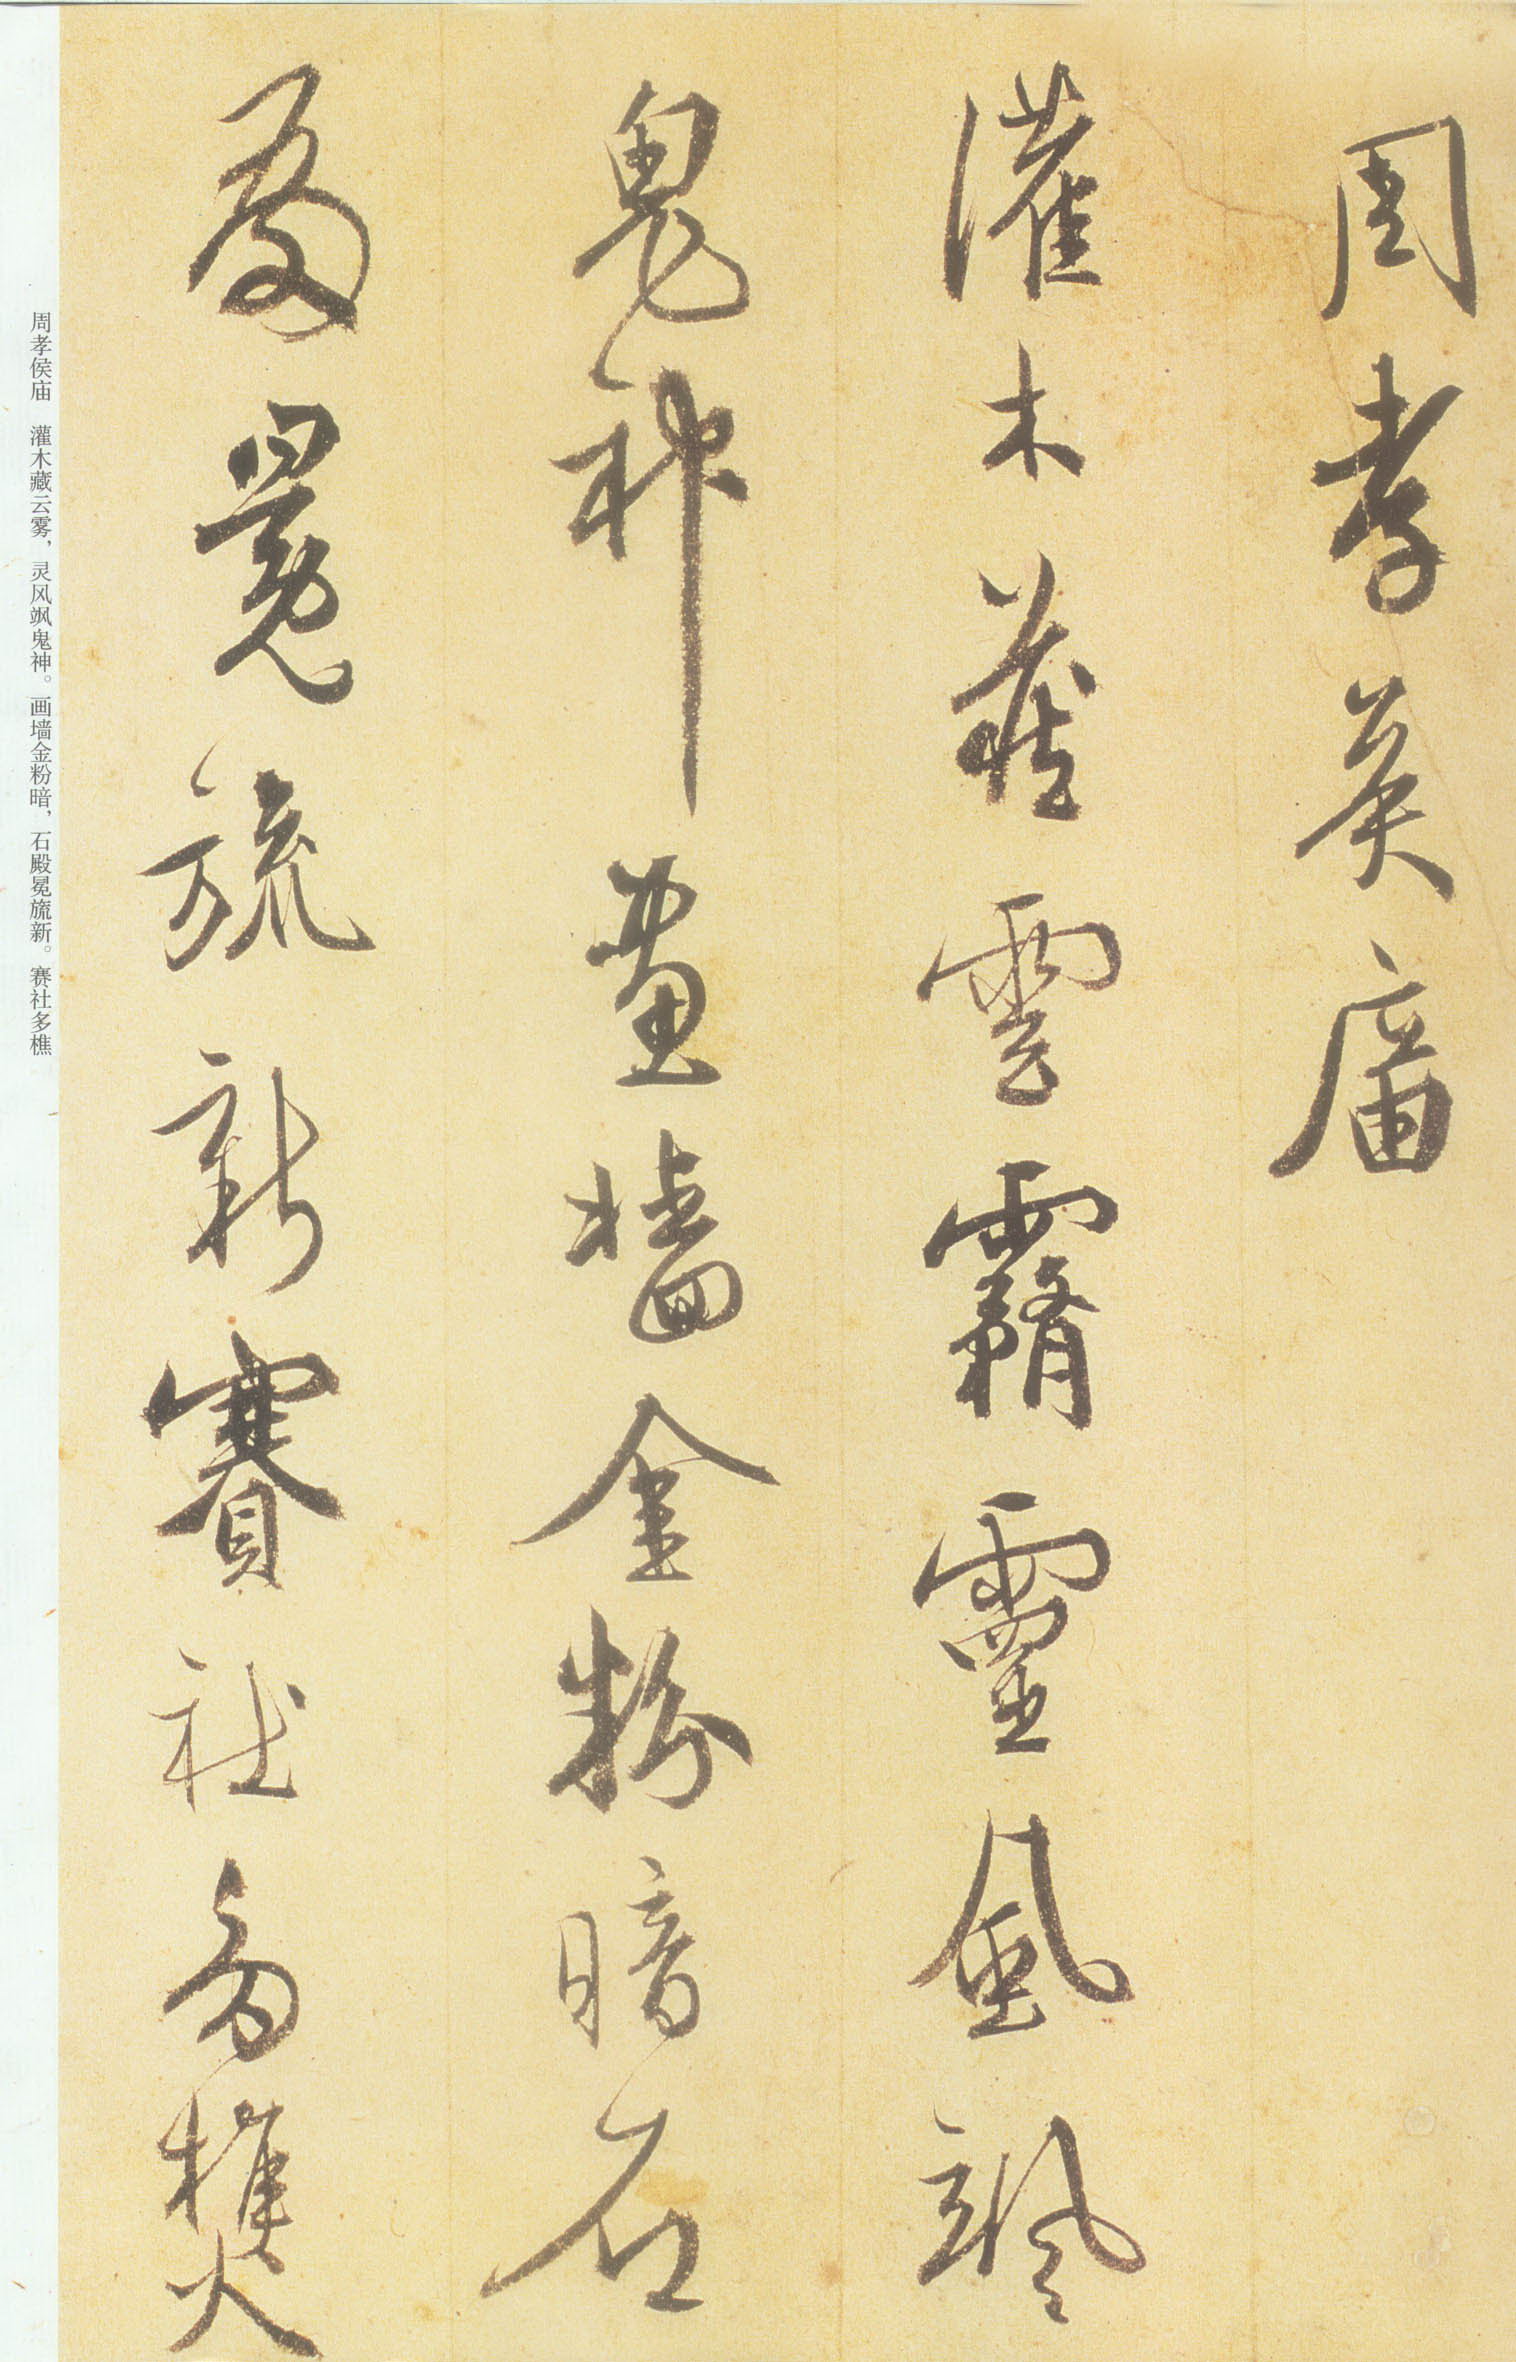 周孝侯廟
灌木藏雲霧靈風颯
鬼神畫墻金粉暗石
殿冕旒新賽社多樵
周孝侯庙　灌木藏云雾，灵风飒鬼神。画墙金粉暗，石殿冕旒新。赛社多樵